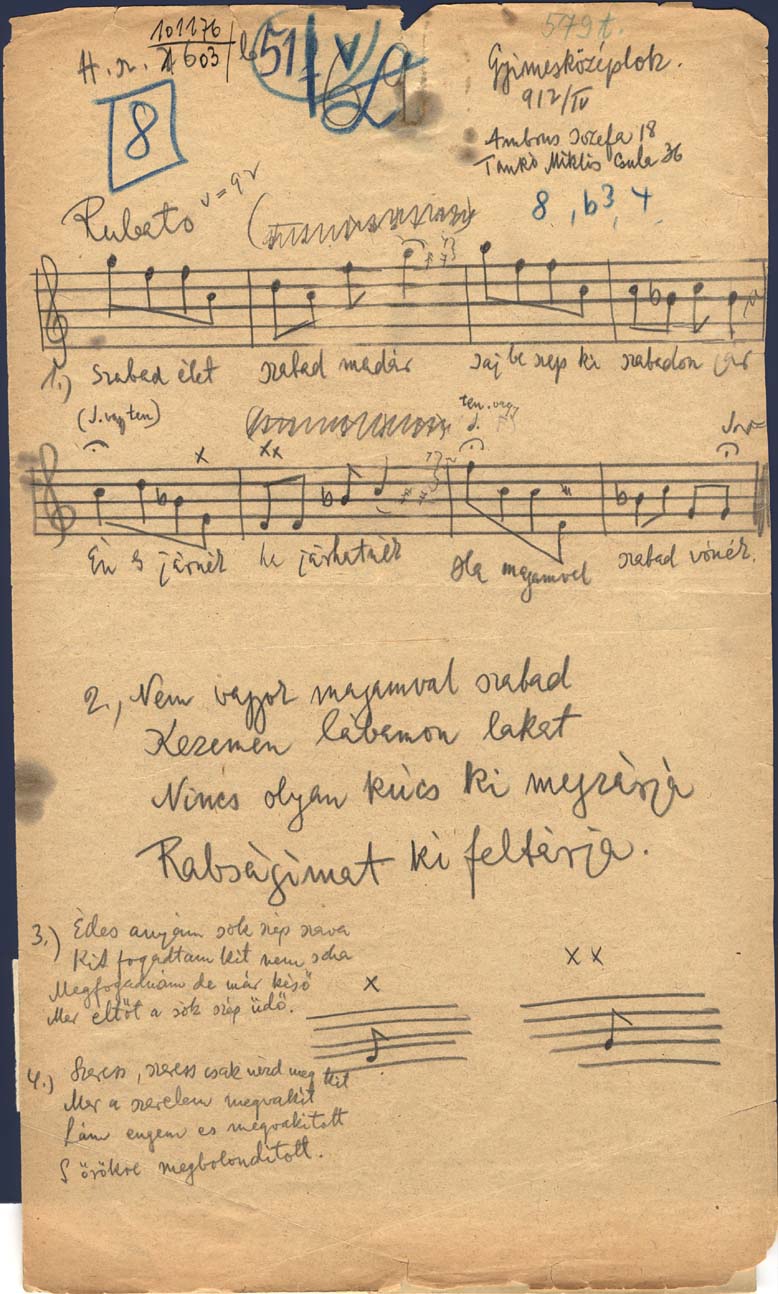 101176
H. n. 1603/b 51 V
579 t.
Gyimesközéplok.
912/IV
Ambrus Jozefa 18
Tankó Miklós Csula 36
8
8, b3, 4
Rubato
1.) Szabad élet szabad madár jaj be szép ki szabadon jár
(J. vagy ten)
ten. vagy J.
x
xx
Én es járnék ha járhatnék Ha magamvel szabad vónék.
2., Nem vagyok magamval szabad
Kezemen lábamon lakat
Nincs olyan kúcs ki megzárja
Rabságimat ki feltárja.
3.) Édes anyám sok szép szava
Kit fogadtam kit nem soha
Megfogadnám de már késő
Mer eltőt a sok szép üdő.
x
x x
4.) Szeress, szeress csak nézd meg kit
Mer a szerelem megvakit
Lám engem es megvakitott
S örökre megbolonditott.